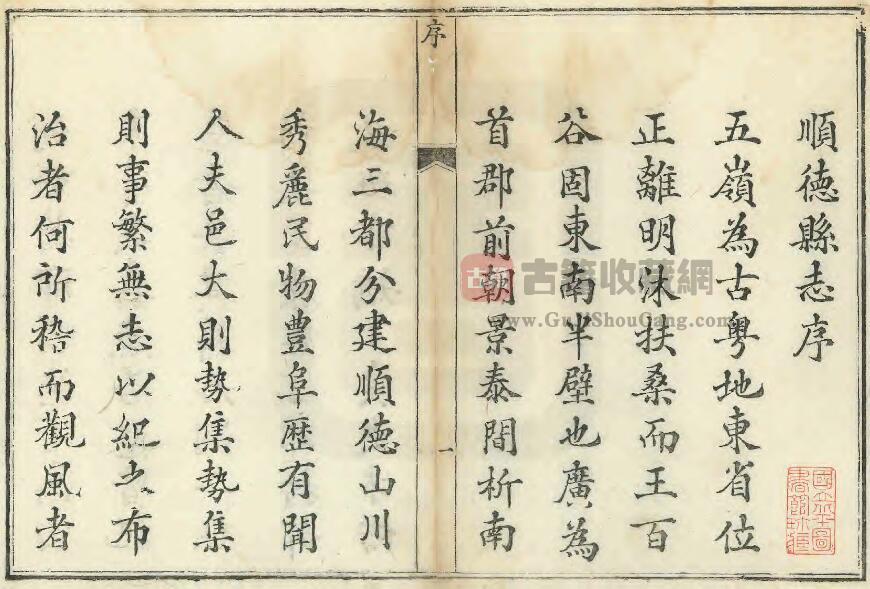 順德縣志序
五嶺為古粤地東省位
正離明沬扶桑而王百
谷固東南半壁也廣為
首郡前朝景泰間析南
序
一
海三都分建順德山川
秀麗民物豊阜歴有聞
人夫邑大則勢集勢集
則事繁無志以紀之布
治者何所稽而觀風者
古籍收藏網
www.GuJiShouCang.com